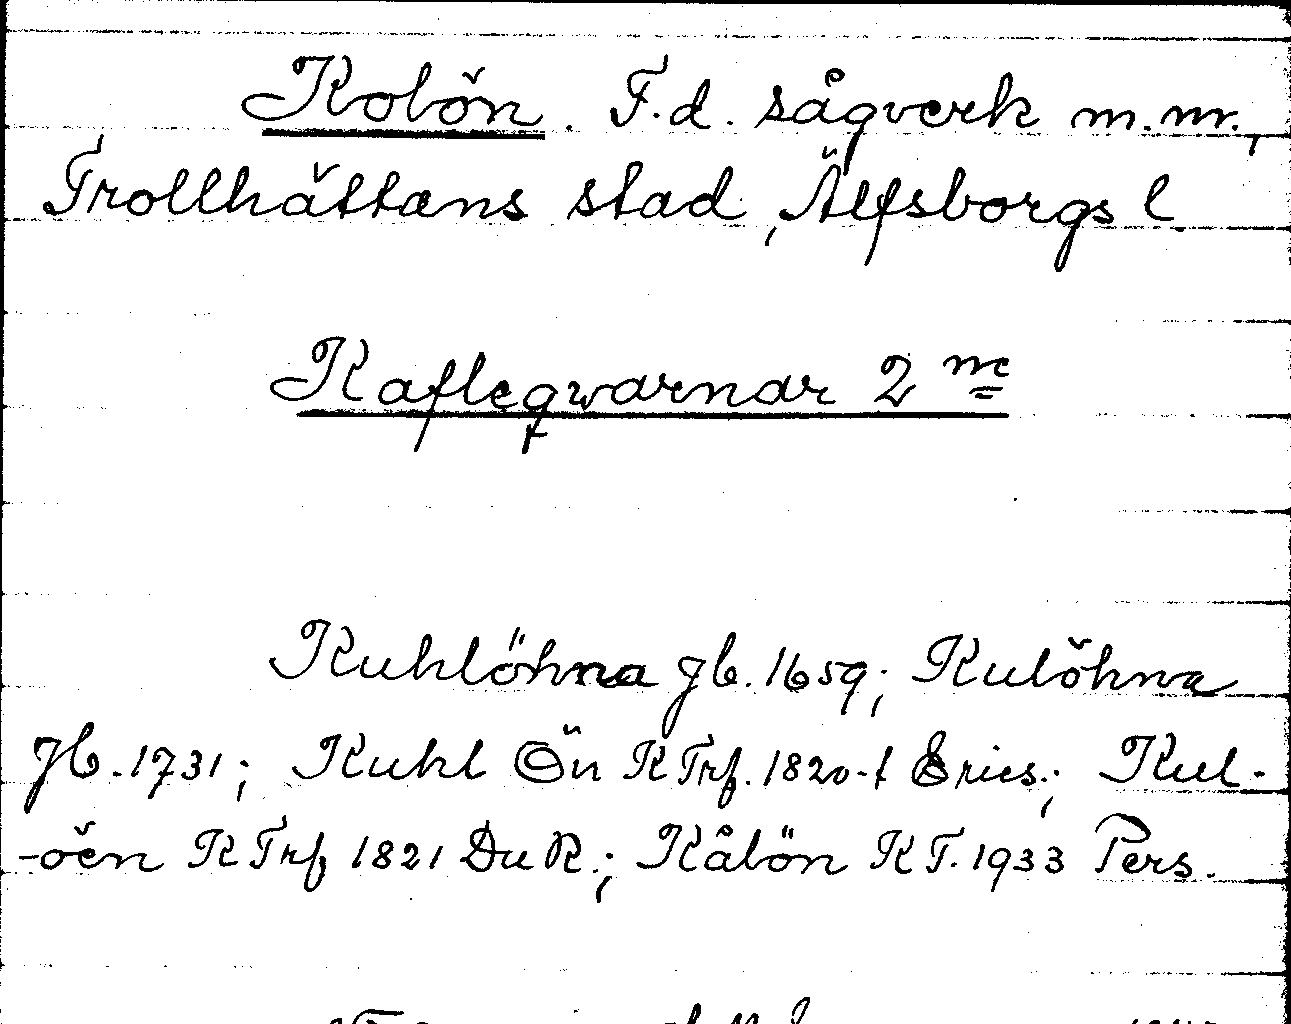 Kolön. F.d. sågverk m.m.,
Trollhättans stad, Älfsborgs l.
Kafleqwarnar 2 ne
Kuhlöhna Jb. 1659; Kulöhna
Jb. 1731; Kuhl Ön KTrf. 1820-t Erics.; Kul-
-öen KTrf 1821 DuR.; Kålön KT. 1933 Pers.